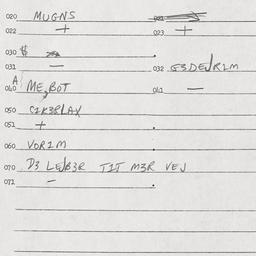 020 MUGNS 021
022 + 023 +
030 $
031 — 032 G3DEJR1M
A
040 ME,BOT 041 —
050 C1K3RLAX
051 +
060 VOR1M
070 D3 LEJB3R T1T M3R VEJ
071 —